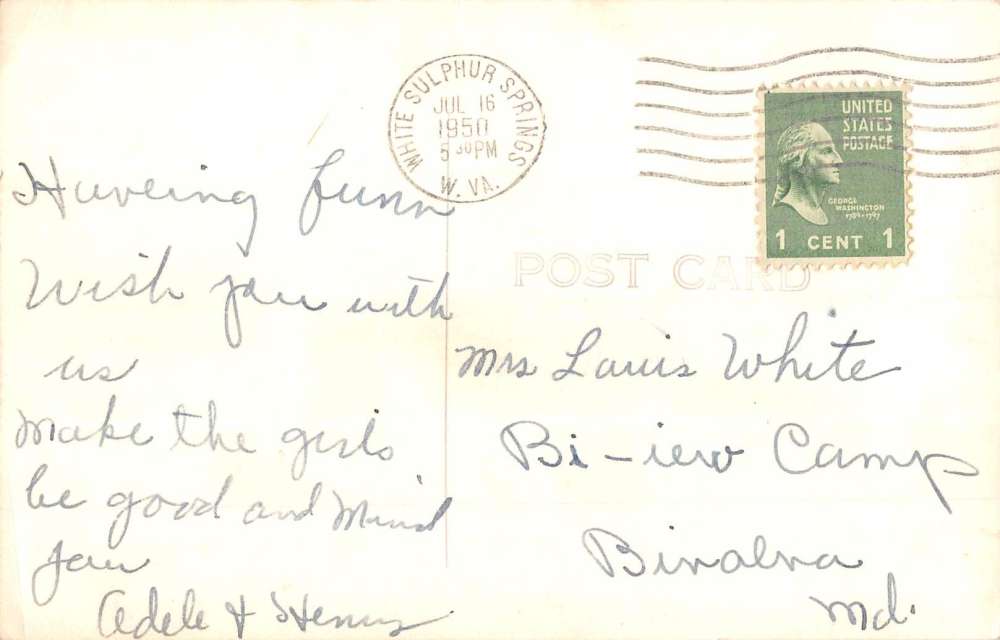 WHITE SULPHUR SPRINGS
JUL 16
1950
5 30 PM
W. VA.
UNITED
STATES
POSTAGE
GEORGE
WASHINGTON
1789-1797
1 CENT 1
POST CARD
Haveing funn
Wish you with
us
Make the girls
be good and Mind
you
Adele & Henry
Mrs Louis White
Bi-iew Camp
Binalna
Md.